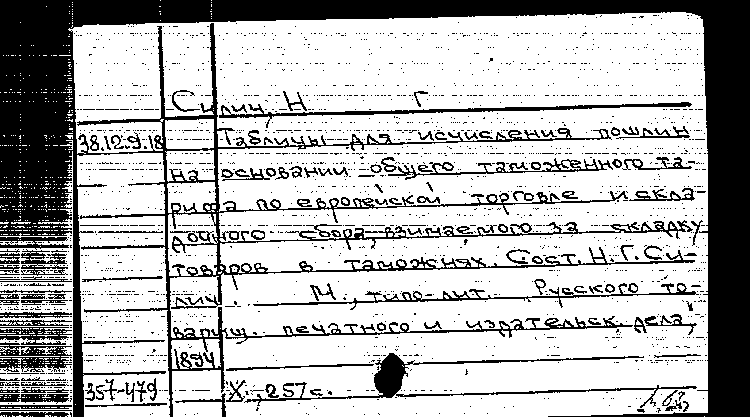 Силич, Н Г
38.12.9.18 Таблицы для исчисления пошлин
на основании общего таможенного та-
рифа по европейской торговле и скла-
дочного сбора, взимаемого за складку
товаров в таможнях. Сост. Н. Г. Си-
лич. М., типо-лит. Русского то-
варищ. печатного и издательск. дела,
1894
357-479 X, 257 с.